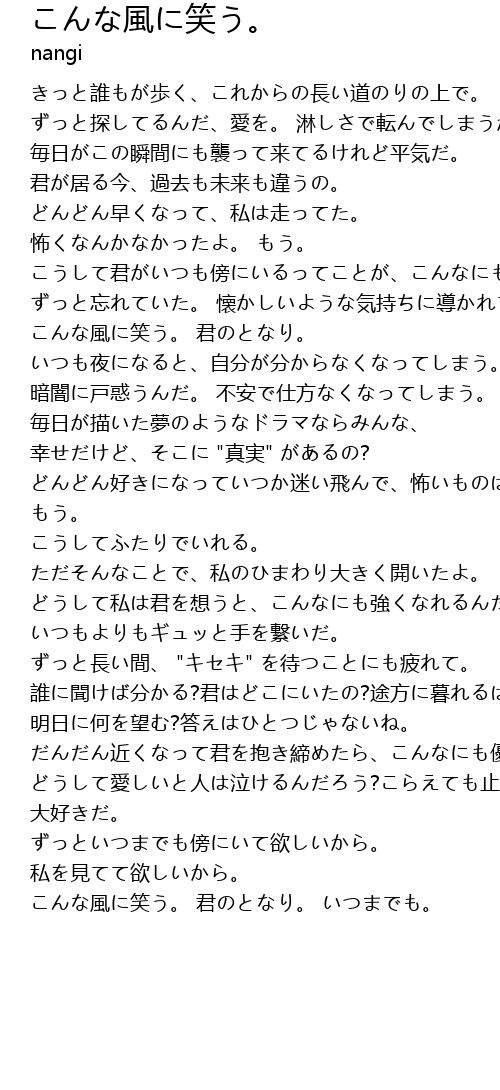 こんな風に笑う。
nangi
きっと誰もが歩く、これからの長い道のりの上で。
ずっと探してるんだ、愛を。 淋しさで転んでしまう
毎日がこの瞬間にも襲って来てるけれど平気だ。
君が居る今、過去も未来も違うの。
どんどん早くなって、私は走ってた。
怖くなんかなかったよ。 もう。
こうして君がいつも傍にいるってことが、こんなにも
ずっと忘れていた。 懐かしいような気持ちに導かれ
こんな風に笑う。 君のとなり。
いつも夜になると、自分が分からなくなってしまう。
暗闇に戸惑うんだ。 不安で仕方なくなってしまう。
毎日が描いた夢のようなドラマならみんな、
幸せだけど、そこに "真実" があるの?
どんどん好きになっていつか迷い飛んで、怖いものは
もう。
こうしてふたりでいれる。
ただそんなことで、私のひまわり大きく開いたよ。
どうして私は君を想うと、こんなにも強くなれるんだ
いつもよりもギュッと手を繋いだ。
ずっと長い間、 "キセキ" を待つことにも疲れて。
誰に聞けば分かる?君はどこにいたの?途方に暮れるほ
明日に何を望む?答えはひとつじゃないね。
だんだん近くなって君を抱き締めたら、こんなにも優
どうして愛しいと人は泣けるんだろう?こらえても止
大好きだ。
ずっといつまでも傍にいて欲しいから。
私を見てて欲しいから。
こんな風に笑う。 君のとなり。 いつまでも。